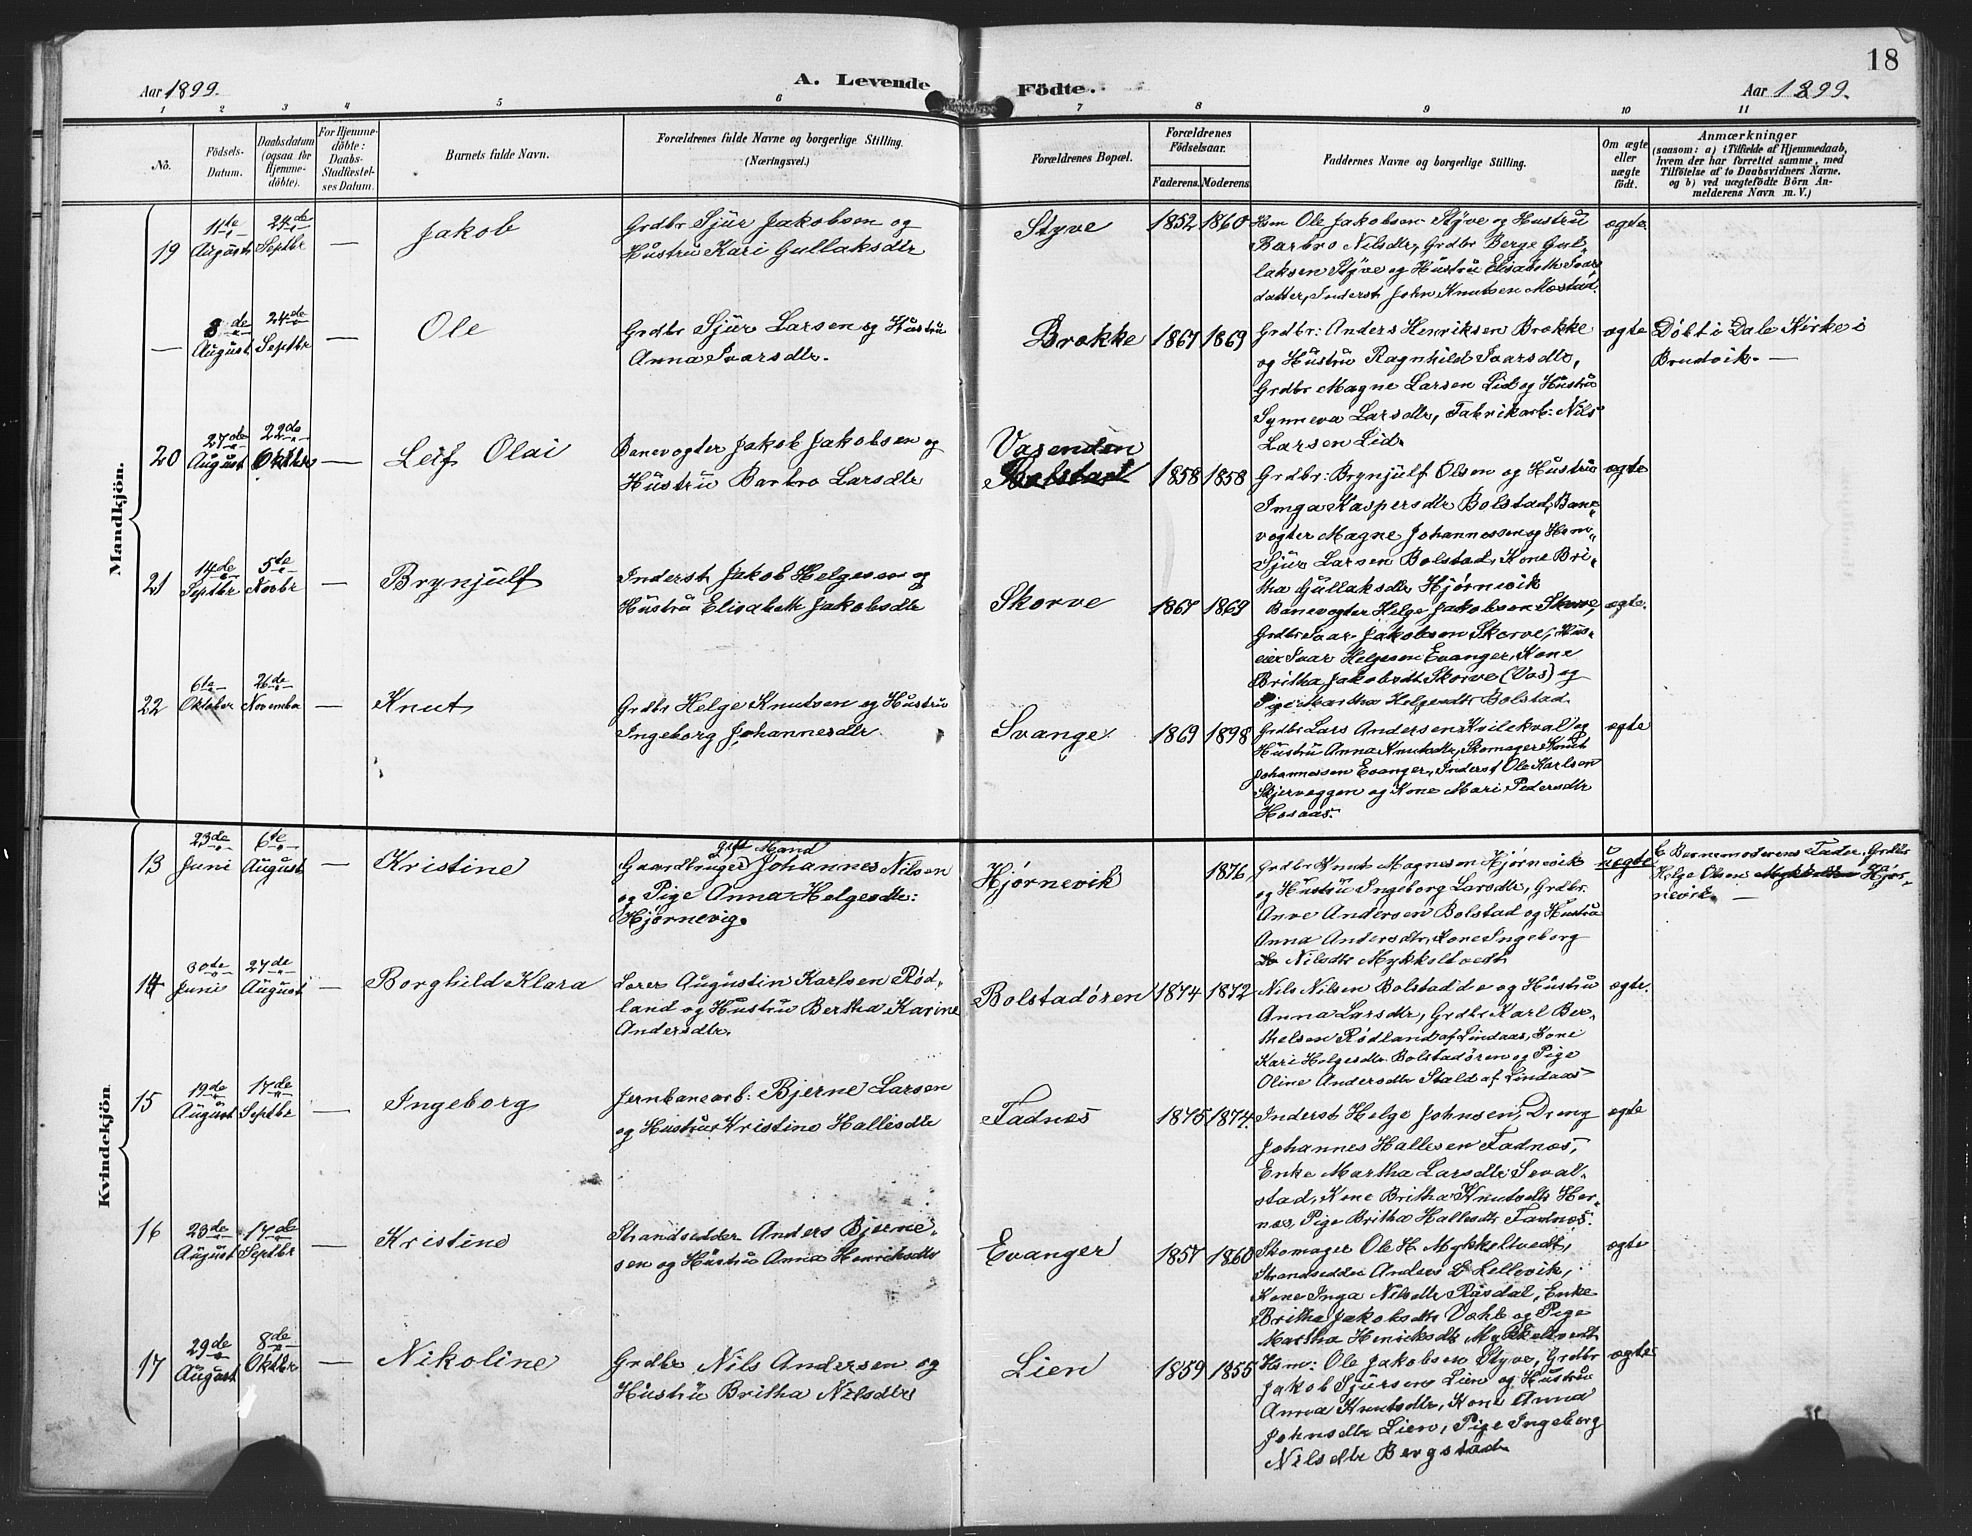 18
Aar 1899.
A. Levende Födte.
Aar 1899.
1 2 3 4 5 6 7 8 9 10 11
No.
Födsels-
Datum.
Daabsdatum
(ogsaa för
Hjemme-
döbte).
For Hjemme-
döbte:
Daabs-
Stadfæstel-
ses Datum.
Barnets fulde Navn.
Forældrenes fulde Navne og borgerlige Stilling.
(Næringsvei.)
Forældrenes Bopæl.
Forældrenes
Födselsaar.
Faderens. Moderens.
Faddernes Navne og borgerlige Stilling.
Om ægte
eller
uægte
födt.
Anmærkninger
(saasom: a) i Tilfælde af Hjemmedaab,
hvem der har forrettet samme, med
Tilföielse af to Daabsvidners Navne.
og b) ved uægtefödte Börn An-
melderens Navn m. V.)
Mandkjön.
19
11te
August
24de
Septbr
—
Jakob
Grdbr Sjur Jakobsen og
Hustru Kari Gullaksdtr
Styve
1852
1860
Hsm Ole Jakobsen Styve og Hustru
Barbro Nilsdtr, Grdbr Berge Gul-
laksen Styve og Hustru Elisabeth Ivars
datter, Inderst John Knutsen Mostad.
ægte
—
8de
August
24de
Septbr
—
Ole
Grdbr Sjur Larsen og Hustru
Anna Ivarsdtr.
Brække
1867
1869
Grdbr: Anders Henriksen Brække
og Hustru Ragnhild Ivarsdtr,
Grdbr Magne Larsen Lid og Hustru
Synneva Larsdtr, Fabrikarb: Nils
Larsen Lid.
ægte
Døbt i Dale Kirke i
Bruvik. —
20
27de
August
22de
Oktbr
—
Leif Olai
Banevogter Jakob Jakobsen og
Hustru Barbro Larsdtr
Vasenden
Bolstad
1858
1858
Grdbr: Brynjulf Olsen og Hustru
Inga Kaspersdtr Bolstad, Bane-
vogter Magne Johannessen og Hsm
Sjur Larsen Bolstad, Kone Bri-
tha Gullaksdtr Hjørnevik
ægte
21
14de
Septbr
5te
Novbr
—
Brynjulf
Inderst Jakob Helgesen og
Hustru Elisabeth Jakobsdtr
Skorve
1867
1869
Banevogter Helge Jakobsen Skorve,
Grdbr Ivar Jakobsen Skorve, Hus-
eier Ivar Helgesen Evanger, Kone
Britha Jakobsdtr Skorve (Vos) og
Pige Martha Helgesdtr Bolstad.
ægte.
22
6te
Oktober
26de
November
—
Knut
Grdbr Helge Knutsen og Hustru
Ingeborg Johannesdtr.
Svange
1869
1898
Grdbr Lars Andersen Kvilekval og
Hustru Anna Knutsdtr, Skomager Knut
Johannessen Evanger, Inderst Ole Karlsen
Skjerveggen og Kone Mari Pedersdtr
Hosaas.
ægte
Kvindekjön
13
23de
Juni
6te
August
—
Kristine
gift Mand
Gaardbruger Johannes Nilsen
og Pige Anna Helgesdtr:
Hjørnevig.
Hjørnevik
1876
Grdbr Knut Magnesen Hjørnevik
og Hustru Ingeborg Larsdtr, Grdbr.
Anve Andersen Bolstad og Hustru
Anna Andersdtr, Kone Ingeborg
Nilsdtr Mykkeltvedt
uægte
Barnemoderens Fader, Grdbr
Helge Olsen Hjør-
nevik. —
14
30te
Juni
27de
August
—
Borghild Klara
Lærer Augustin Karlsen Rød-
land og Hustru Bertha Karine
Andersdtr.
Bolstadøren
1874
1872
Nils Nilsen Bolstad og Hustru
Anna Larsdtr, Grdbr Karl Ber-
thelsen Rødland af Lindaas, Kone
Kari Helgesdtr Bolstadøren og Pige
Oline Andersdtr Stald af Lindaas
ægte.
15
19de
August
17de
Septbr
—
Ingeborg
Jernbanearb: Bjerne Larsen
og Hustru Kristine Hallesdtr
Fadnæs
1875
1874.
Inderst Helge Johnsen, Dreng
Johannes Hallesen Fadnæs,
Enke Martha Larsdtr Seval-
stad, Kone Britha Knutsdtr Her-
næs, Pige Britha Hallesdtr Fadnæs.
ægte
16
23de
August
17de
Septbr
—
Kristine
Strandsidder Anders Bjerne-
sen og Hustru Anna Henriksdtr
Evanger
1857
1860
Skomager Ole H. Mykkeltvedt,
Strandsidder Anders Hellevik,
Kone Inga Nilsdtr Rasdal, Enke
Britha Jakobsdtr Væhle og Pige
Martha Henriksdtr Mykkeltvedt
ægte
17
29de
August
8de
Oktbr
—
Nikoline
Grdbr Nils Andersen og
Hustru Britha Nilsdtr
Lien
1859
1855
Hsm: Ole Jakobsen Styve, Grdbr
Jakob Sjursen Lien og Hustru
Anna Knutsdtr, Kone Anna
Johnsdtr Lien, Pige Ingeborg
Nilsdtr Bergstad
ægte